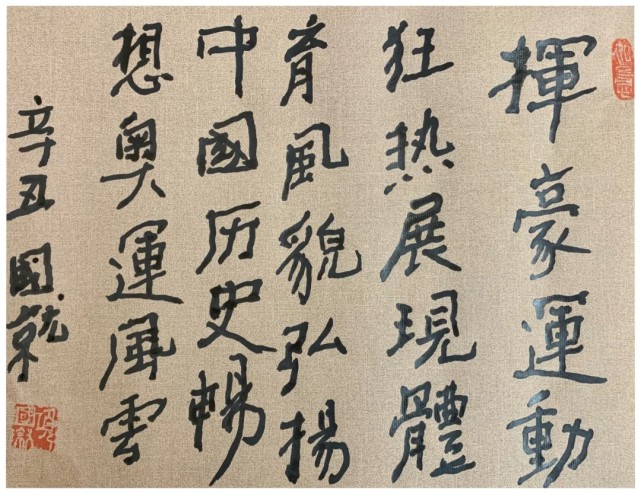 揮豪運動
狂热展現體
育風貌弘揚
中國历史暢
想奥運風雲
辛丑國就